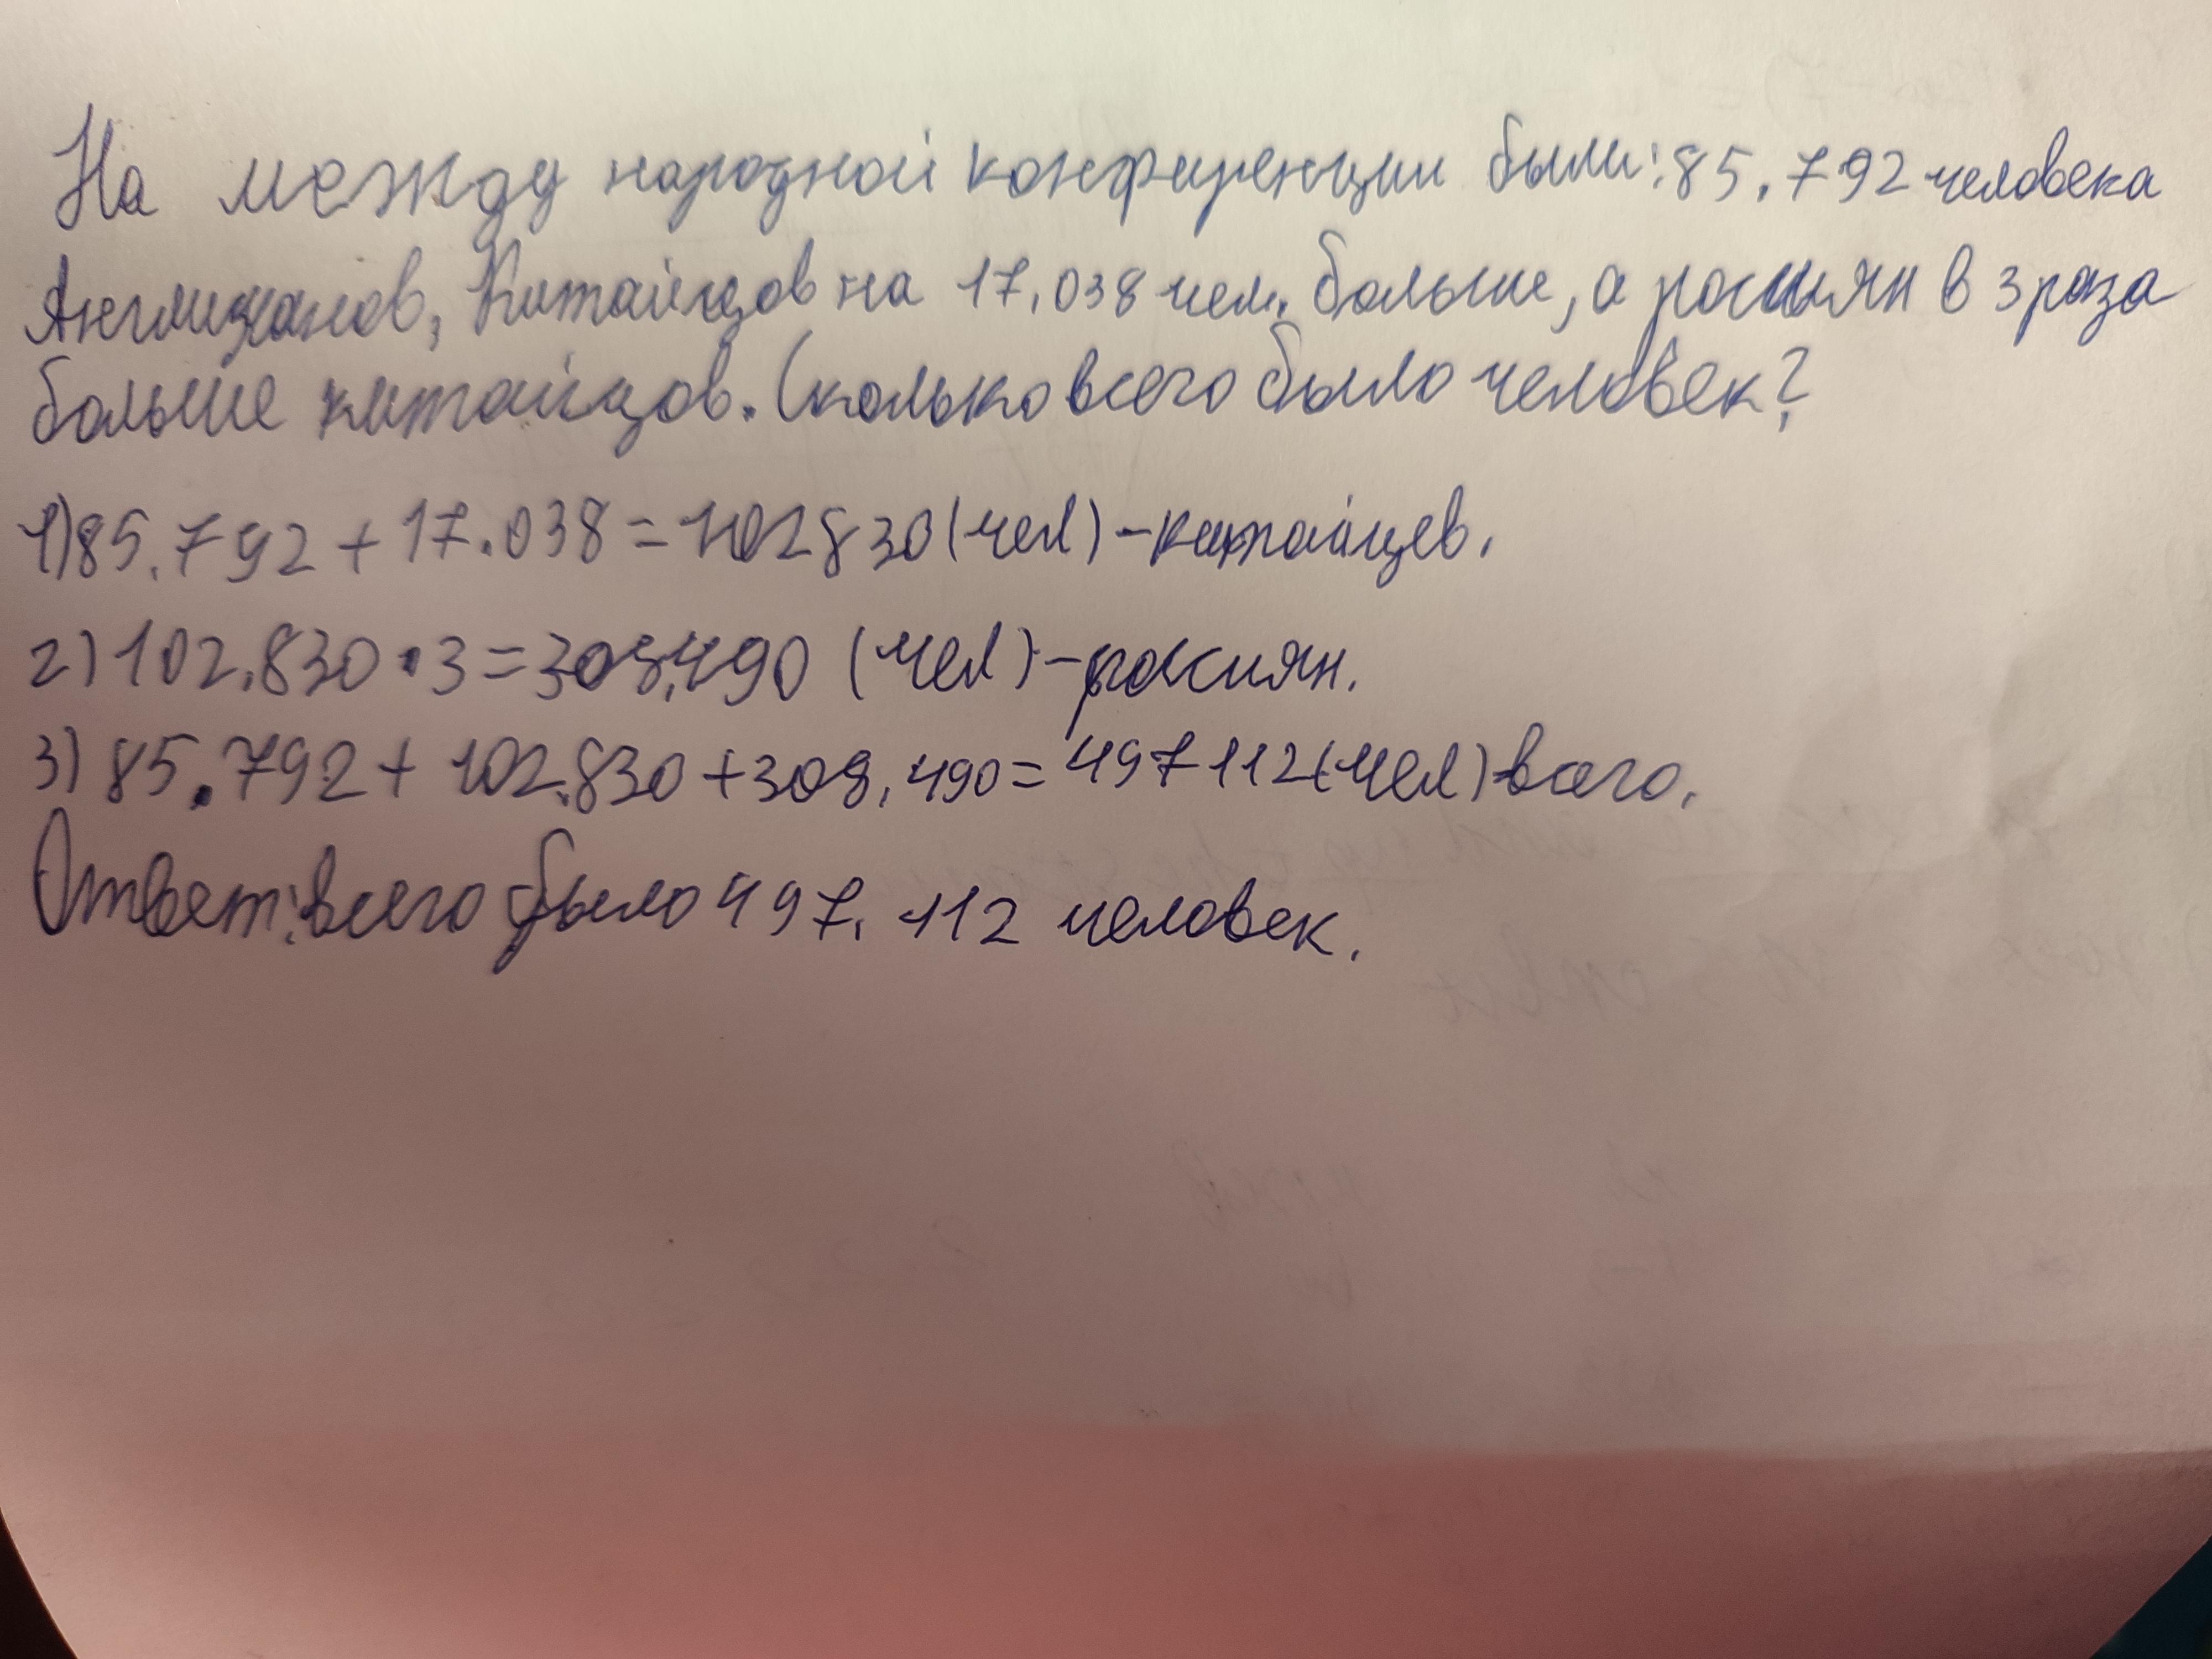 На между народной конфиренции были: 85.792 человека
Англичанов, Китайцов на 17.038 чел. больше, а россиян в 3 раза
больше китайцов. Сколько всего было человек?
1) 85.792 + 17.038 = 102830 (чел) - китайцев.
2) 102.830 • 3 = 308.490 (чел) - россиян.
3) 85.792 + 102.830 + 308.490 = 497112 (чел) всего.
Ответ: всего было 497.112 человек.